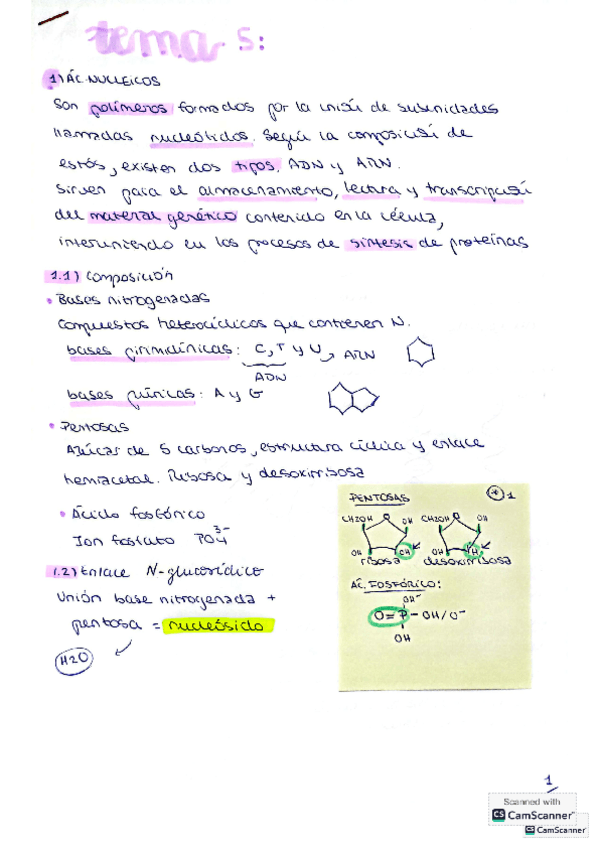 tema 5:
1) ÁC. NUCLEICOS
Son polímeros formados por la unión de subunidades
llamadas nucleótidos. Según la composición de
estós, existen dos tipos, ADN y ARN.
Sirven para el almacenamiento, lectura y transcripción
del material genético contenido en la célula,
interviniendo en los procesos de síntesis de proteínas
1.1) Composición
• Bases nitrogenadas
Compuestos heterocíclicos que contienen N.
bases pirimidínicas: C, T y U → ARN
ADN
bases púricas: A y G
• Pentosas
Azúcar de 5 carbonos, estructura cíclica y enlace
hemiacetal. Ribosa y desoxirribosa
• Ácido fosfórico
Ion fosfato PO4 3-
1.2) Enlace N-glucosídico
Unión base nitrogenada +
pentosa = nucleósido
H2O
PENTOSAS * 1
CH2OH O OH CH2OH O OH
OH OH OH H
ribosa desoxirribosa
AC. FOSFÓRICO:
OH-
O=P-OH/O-
OH
1
Scanned with
CS CamScanner
CS CamScanner